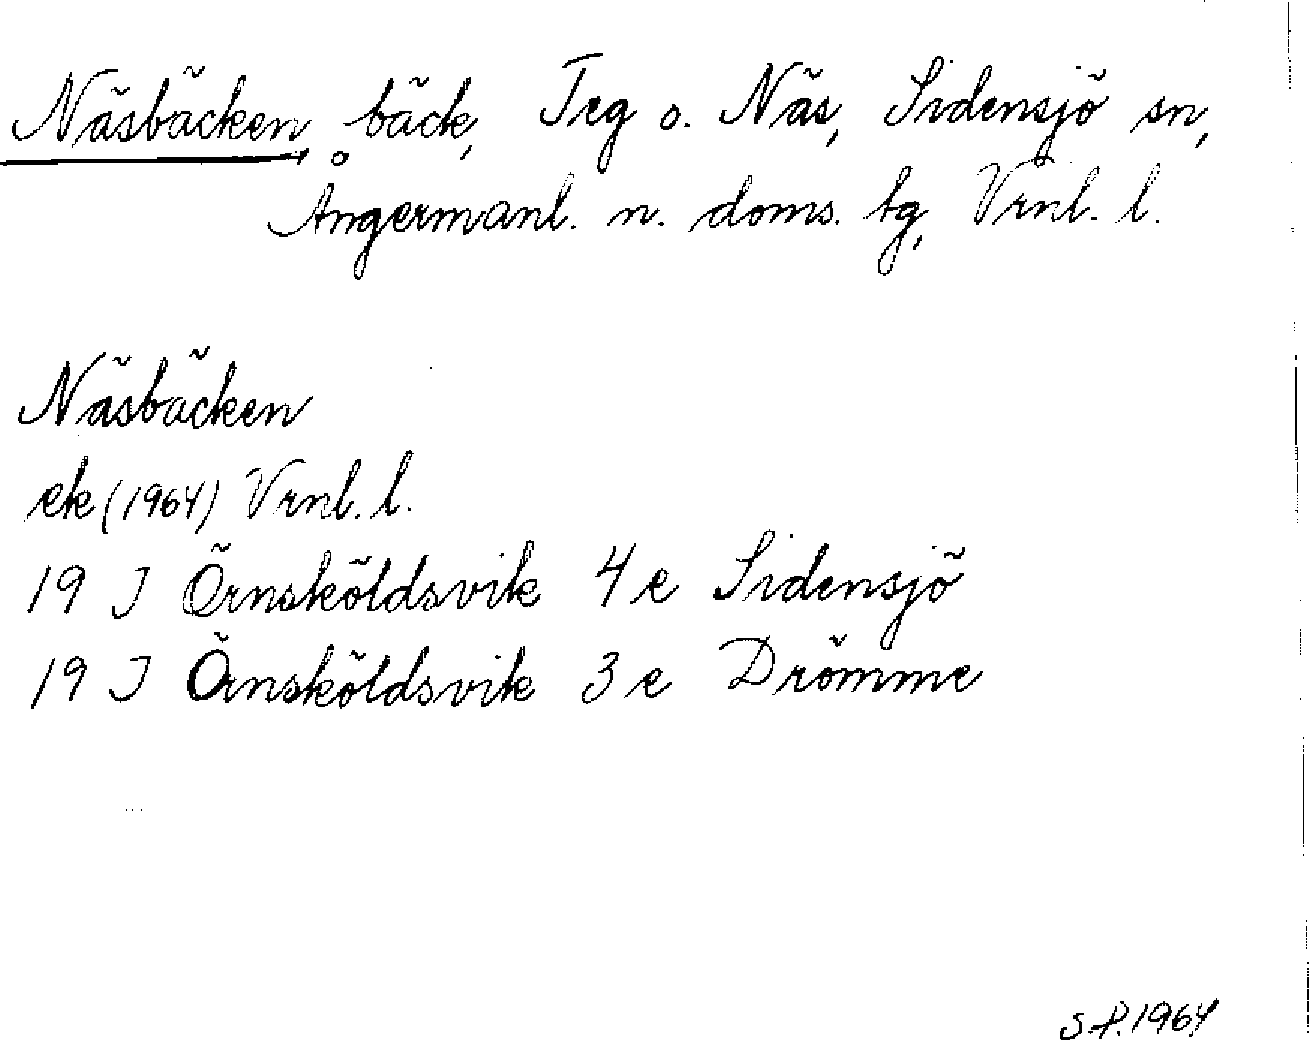 Näsbäcken, bäck, Teg o. Näs, Sidensjö sn,
Ångermanl. n. doms. tg, Vrnl. l.
Näsbäcken
ek (1964) Vrnl. l.
19 J Örnsköldsvik 4 e Sidensjö
19 J Örnsköldsvik 3 e Drömme
S.P. 1964